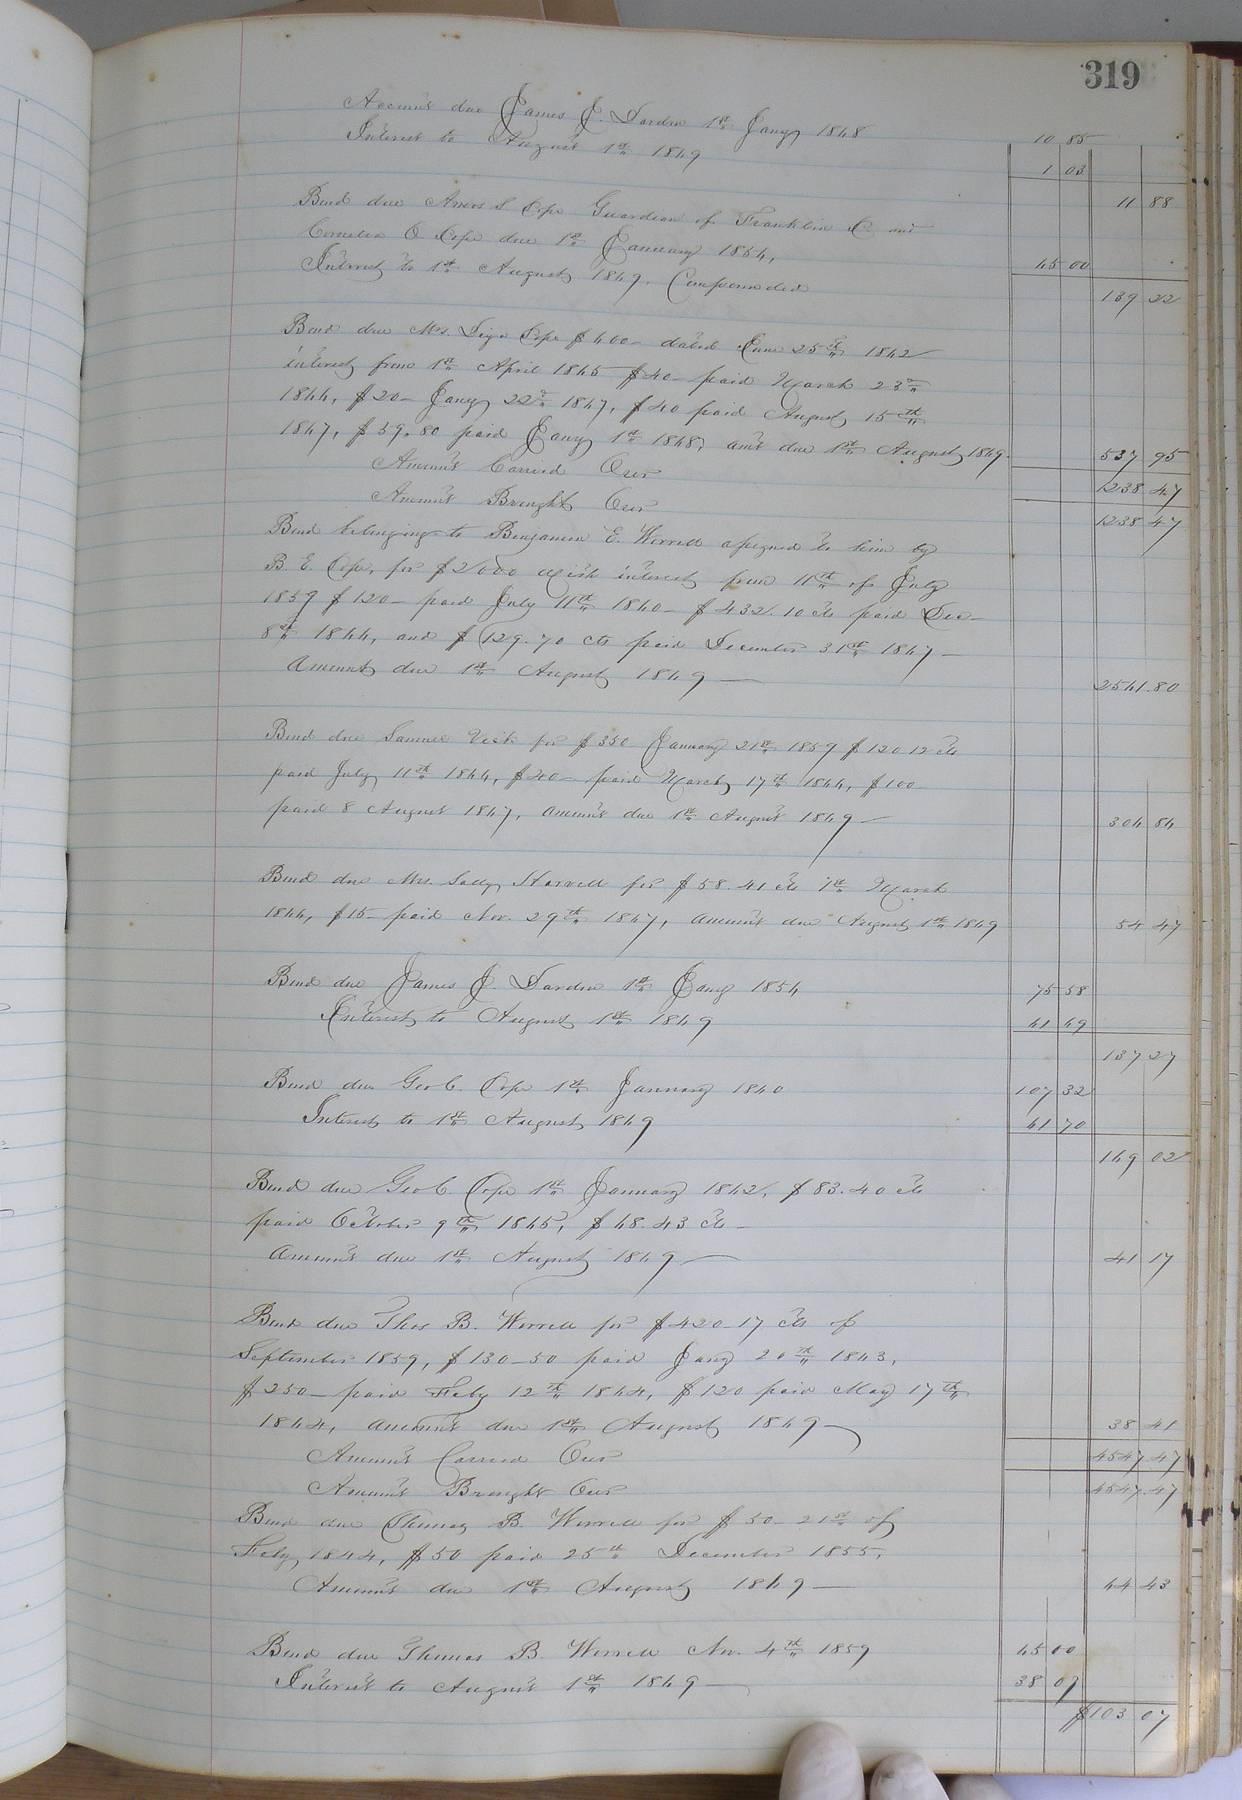 319
Account due James J. Darden 1st Jany 1848 10 85
Interest to August 1st 1849 1 03
11 88
Bond due Amos S Cope Guardian of Franklin C and
Cornelia O Cope due 1st January 1844, 45 00
Interest to 1st August 1849, Compounded
139 22
Bond due Mrs. Cope $400 - dated June 25th 1842
interest from 1st April 1845 $40 - paid March 23d
1844, $20 - Jany 22d 1847, $40 paid August 15th
1847, $39.80 paid Jany 1st 1848, amt due 1st August 1849. 537 95
Amount Carried Over 1238 47
Amount Brought Over 1238 47
Bond belonging to Benjamin E. Worrell assigned to him by
B. E. Cope, for $2000 with interest from 11th of July
1839 $120 - paid July 11th 1840 - $432.10 cts paid Dec -
8th 1844, and $129.70 cts paid December 31st 1847 -
Amount due 1st August 1849 - 2541.80
Bond due Samuel Vick for $350 January 21st 1839 $120 12 cts
paid July 11th 1844, $20 - paid March 17th 1844, $100
paid 8 August 1847, amount due 1st August 1849 - 304 84
Bond due Mrs. Sally Harrell for $58.41 cts 1st March
1844, $15 - paid Nov. 29th 1847, amount due August 1st 1849 54 47
Bond due James J. Darden 1st Jany 1834 75 58
Interest to August 1st 1849 61 69
137 27
Bond due Geo C. Cope 1st January 1840 107 32
Interest to 1st August 1849 61 70
169 02
Bond due Geo C. Cope 1st January 1842, $83.40 cts
paid October 9th 1845, $68.43 cts -
Amount due 1st August 1849 - 41 17
Bond due Thos B. Worrell for $420 - 17 cts of
September 1839, $130 - 50 paid Jany 20th 1843,
$250 - paid Feby 12th 1844, $120 paid May 17th
1844, amount due 1st August 1849 - 38 41
Amount Carried Over 4547 47
Amount Brought Over 4547.47
Bond due Thomas B. Worrell for $50 - 21st of
Feby 1844, $50 paid 25th December 1855,
Amount due 1st August 1849 - 44 43
Bond due Thomas B. Worrell Nov. 4th 1839 65 00
Interest to August 1st 1849 - 38 07
$103 07